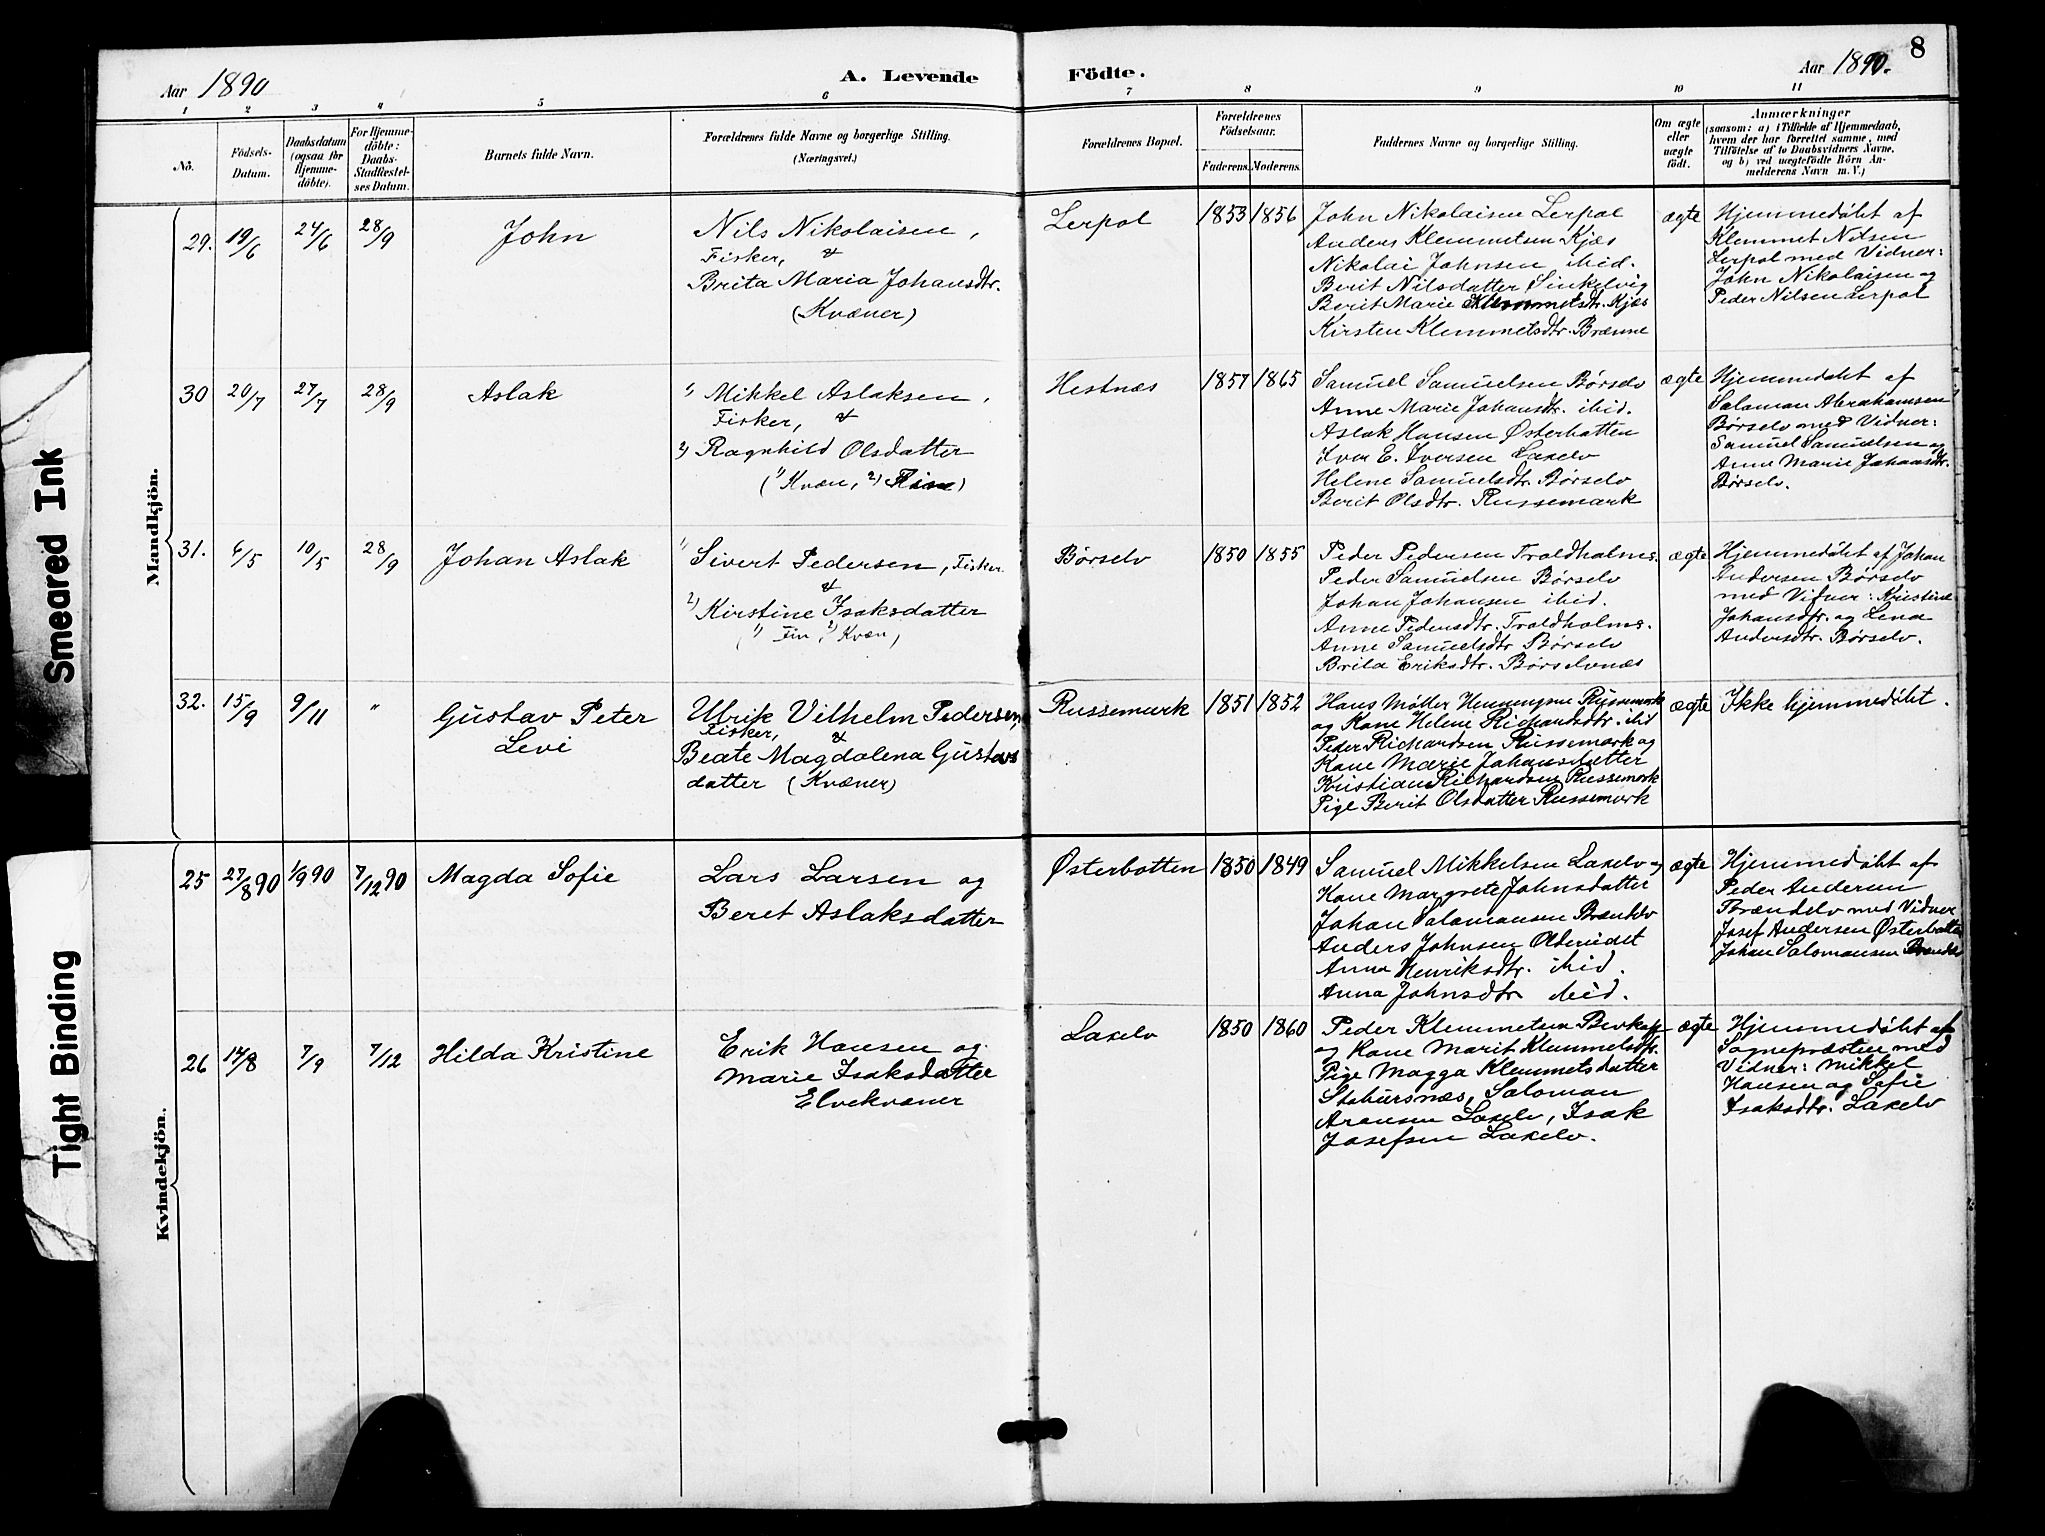 8
Aar 1890
A. Levende Födte.
Aar 1890.
1 2 3 4 5 6 7 8 9 10 11
Nö.
Födsels-
Datum.
Daabsdatum
(ogsaa for
Hjemme-
döbte).
For Hjemme-
döbte:
Daabs-
Stadfæstel-
ses Datum.
Barnets fulde Navn.
Forældrenes fulde Navne og borgerlige Stilling.
(Næringsvei.)
Forældrenes Bopæl.
Forældrenes
Födselsaar.
Faderens. Moderens.
Faddernes Navne og borgerlige Stilling.
Om ægte
eller
uægte
födt.
Anmærkninger
(saasom: a) i Tilfælde af Hjemmedaab,
hvem der har forrettet samme, med
Tilföielse af to Daabsvidners Navne,
og b) ved uægtefödte Börn An-
melderens Navn m. V.)
Mandkjön.
29. 19/6 24/6 28/9 John
Nils Nikolaisen,
Fisker, &
Brita Maria Johansdtr.
(Kvæner)
Lerpol 1853 1856
John Nikolaisen Lerpol
Anders Klemmetsen Kjæs
Nikolai Johnsen ibid.
Berit Nilsdatter Sinkelvig
Berit Marie Klemmetsdtr. Kjæs
Kirsten Klemmetsdtr. Brænne
ægte
Hjemmedøbt af
Klemmet Nilsen
Lerpol med Vidner:
John Nikolaisen og
Peder Nilsen Lerpol
30 20/7 27/7 28/9 Aslak
1) Mikkel Aslaksen,
Fisker, &
2) Ragnhild Olsdatter
(1) Kvæn, 2) Fin)
Hestnæs 1857 1865
Samuel Samuelsen Børselv
Anne Marie Johansdtr. ibid.
Aslak Hansen Østerbotten
Iver E. Iversen Laxelv
Helene Samuelsdtr. Børselv
Berit Olsdtr. Russemark
ægte
Hjemmedøbt af
Salaman Abrahamsen
Børselv med Vidner:
Samuel Samuelsen og
Anne Marie Johansdtr.
Børselv.
31. 6/5 10/5 28/9 Johan Aslak
1) Sivert Pedersen, Fisker
&
2) Kirstine Isaksdatter
(1) Fin, 2) Kvæn)
Børselv 1850 1855
Peder Pedersen Troldholms.
Peder Samuelsen Børselv
Johan Johansen ibid.
Anne Pedersdtr. Troldholms.
Anne Samuelsdtr Børselv
Brita Eriksdtr. Børselvnæs
ægte
Hjemmedøbt af Johan
Andersen Børselv
med Vidner: Kristine
Johansdtr. og Lena
Andersdtr. Børselv.
32. 15/9 9/11 " Gustav Peter
Levi
Ulrik Vilhelm Pedersen,
Fisker, &
Beate Magdalena Gustavs
datter (Kvæner)
Russemark 1851 1852
Hans Møller Henningsen Russemark
og Kone Helene Richardsdtr. ibid
Peder Richardsen Russemark og
Kone Marie Johansdatter
Kristian Richardsen Russemark
Pige Berit Olsdatter Russemark
ægte
Ikke hjemmedøbt.
Kvindekjön.
25 27/8 90 1/9 90 7/12 90 Magda Sofie
Lars Larsen og
Beret Aslaksdatter
Østerbotten 1850 1849
Samuel Mikkelsen Laxelv og
Kone Margrete Johnsdatter
Johan Salamansen Brændelv
Anders Johnsen Oldereidet
Anna Henriksdtr. ibid.
Anna Johnsdtr ibid.
ægte
Hjemmedøbt af
Peder Andersen
Brændelv med Vidner
Josef Andersen Østerbotten
Johan Salomansen Brændelv
26 14/8 7/9 7/12 Hilda Kristine
Erik Hansen og
Marie Isaksdatter
Elvekvæner
Laxelv 1850 1860
Peder Klemmetsen
og Kone Marit Klemmetsdtr.
Pige Magga Klemmetsdatter
Stabursnæs, Saloman
Aronsen Laxelv, Isak
Josefsen Laxelv.
ægte
Hjemmedøbt af
Sognepræsten med
Vidner: Mikkel
Hansen og Sofie
Isaksdtr. Laxelv
Smeared Ink
Tight Binding